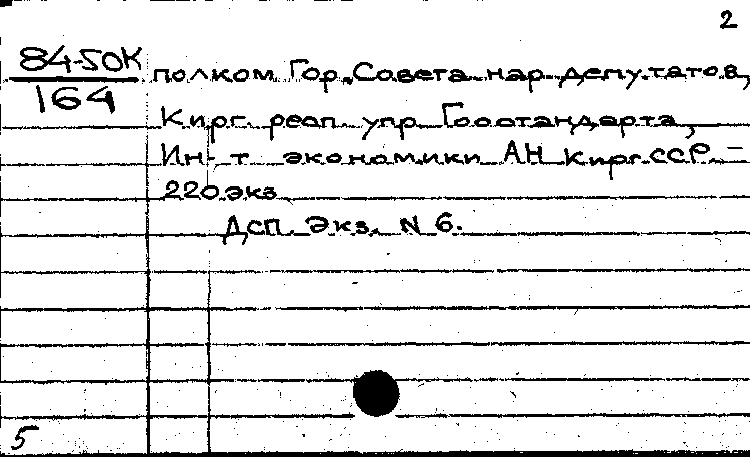 2
84-50К
164
полком Гор. Совета нар. депутатов,
Кирг. респ. упр. Госстандарта,
Ин-т экономики АН Кирг.ССР. –
220 экз
Дсп. Экз. N 6.
5